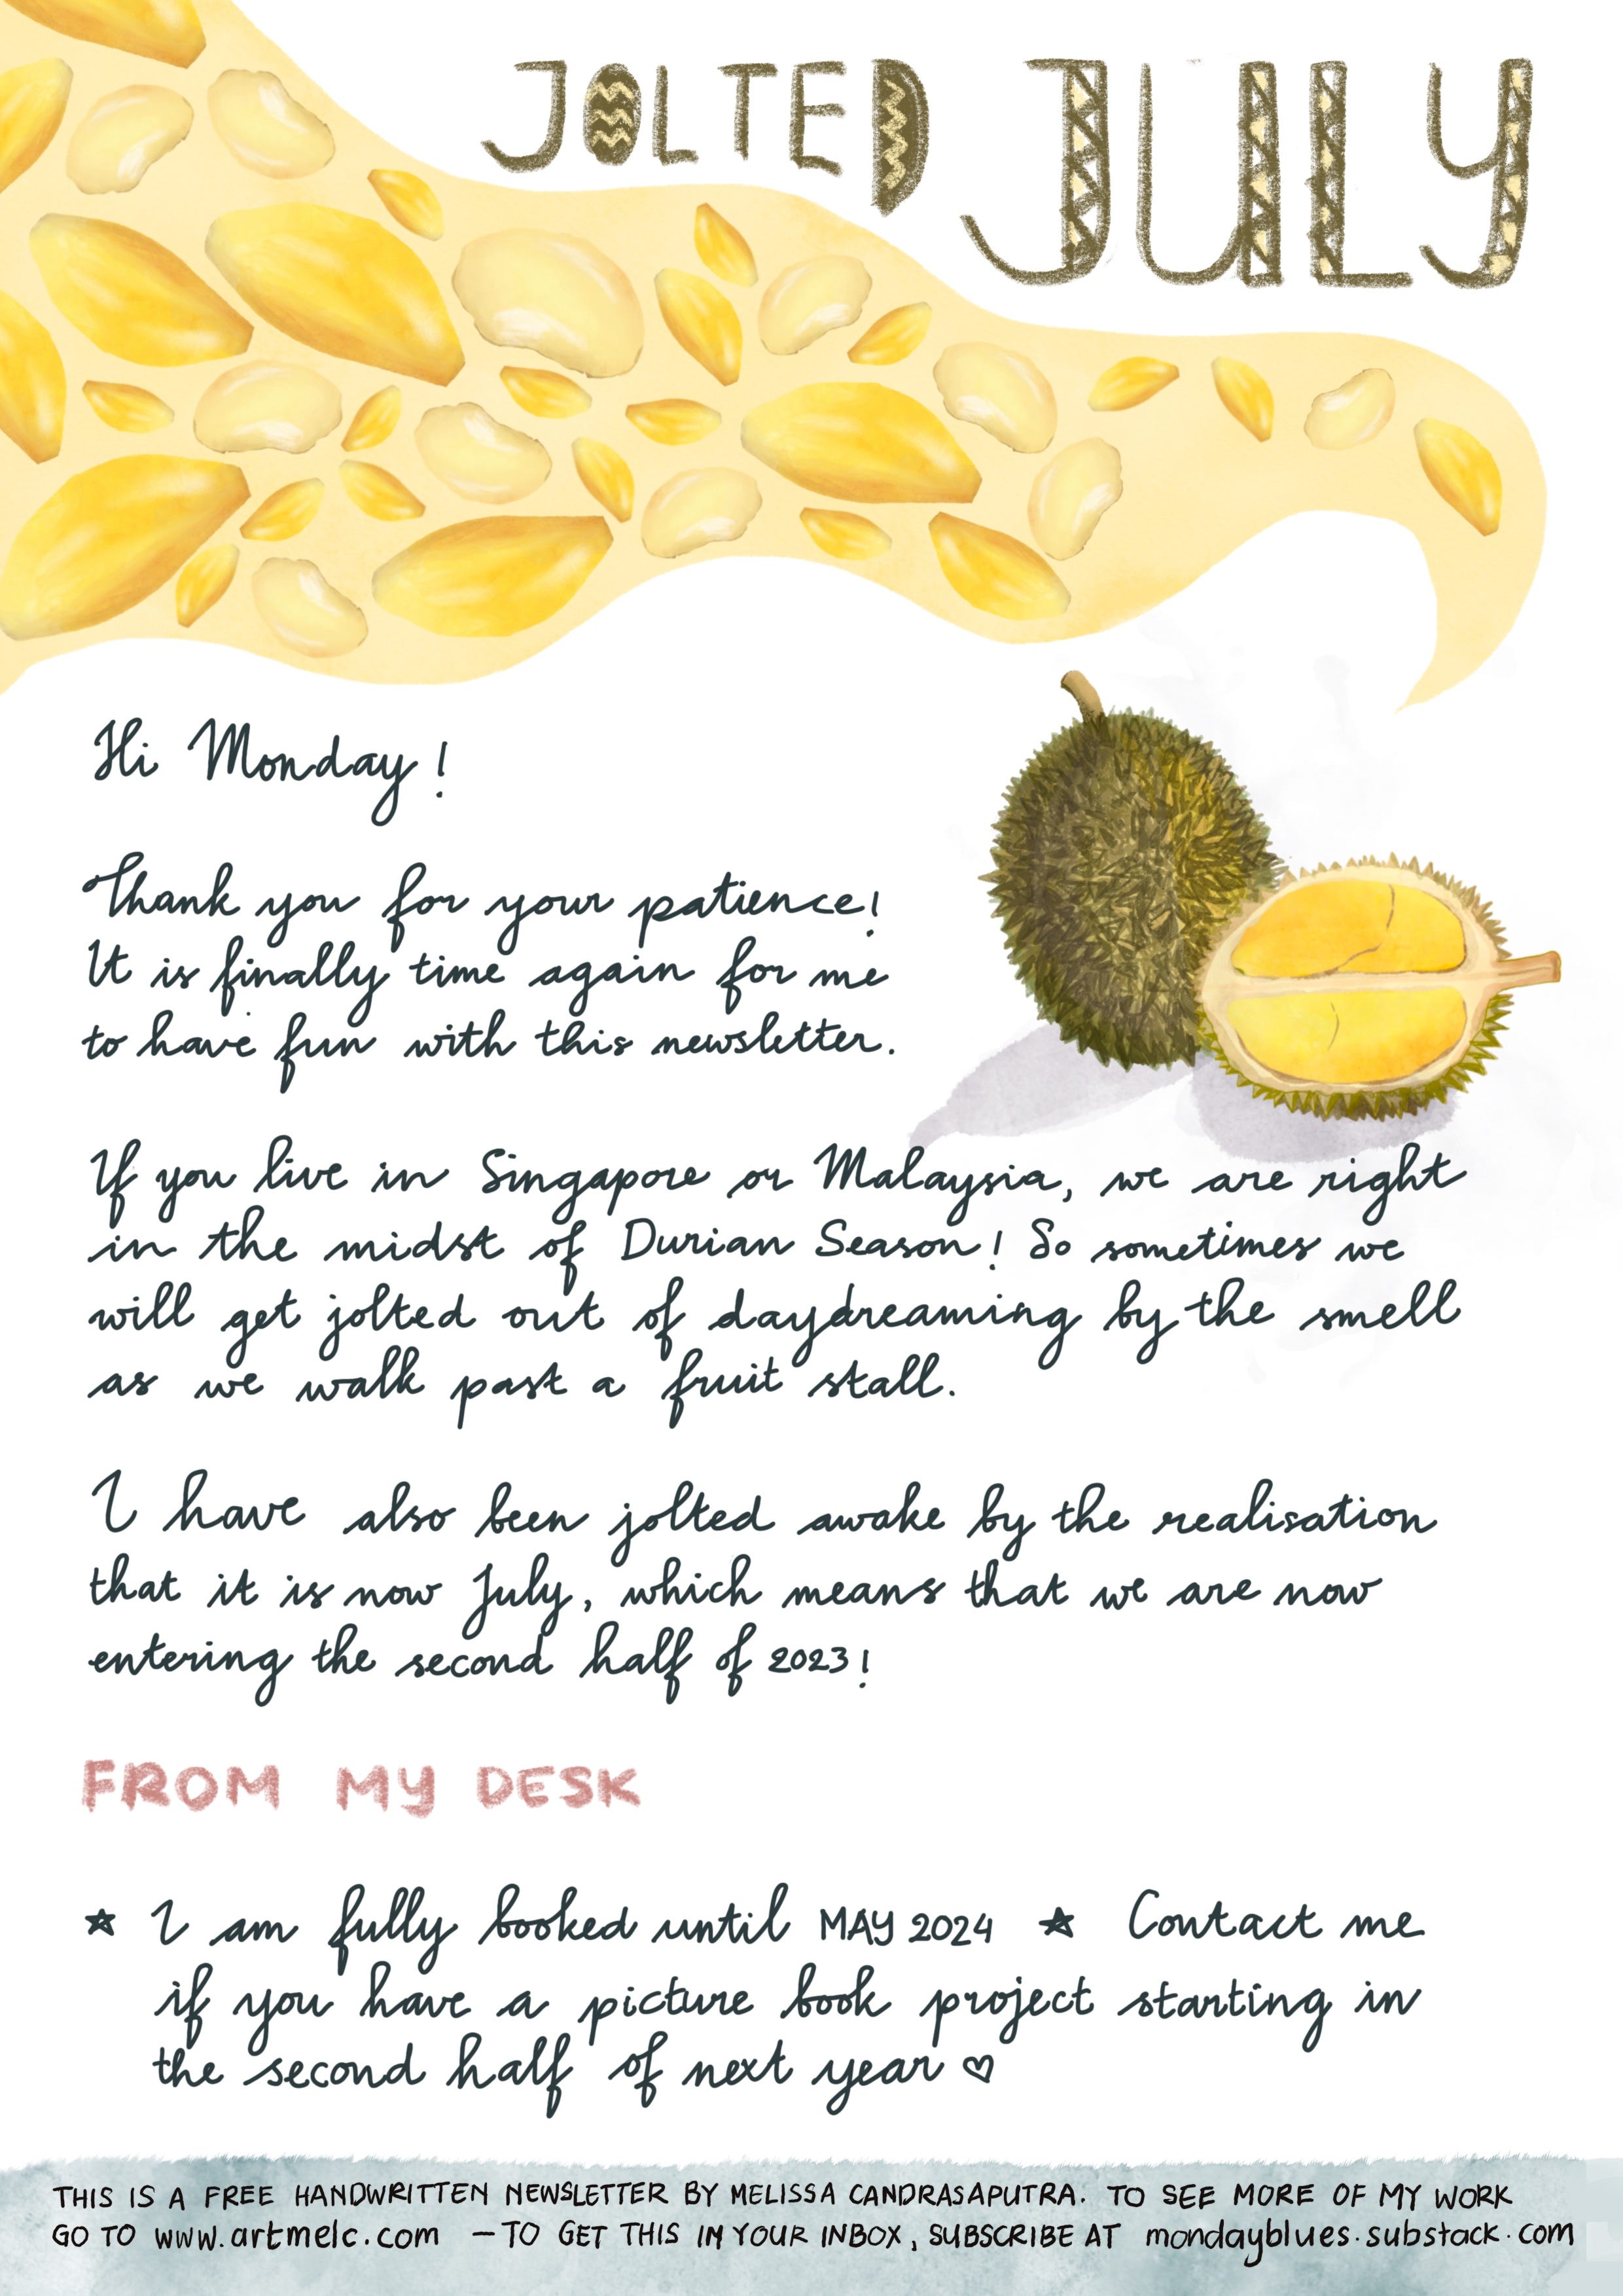 JOLTED JULY
Hi Monday!
Thank you for your patience!
It is finally time again for me
to have fun with this newsletter.
If you live in Singapore or Malaysia, we are right
in the midst of Durian Season! So sometimes we
will get jolted out of daydreaming by the smell
as we walk past a fruit stall.
I have also been jolted awake by the realisation
that it is now July, which means that we are now
entering the second half of 2023!
FROM MY DESK
☆ I am fully booked until MAY 2024 ☆ Contact me
if you have a picture book project starting in
the second half of next year ♡
THIS IS A FREE HANDWRITTEN NEWSLETTER BY MELISSA CANDRASAPUTRA. TO SEE MORE OF MY WORK
GO TO www.artmelc.com — TO GET THIS IN YOUR INBOX, SUBSCRIBE AT mondayblues.substack.com